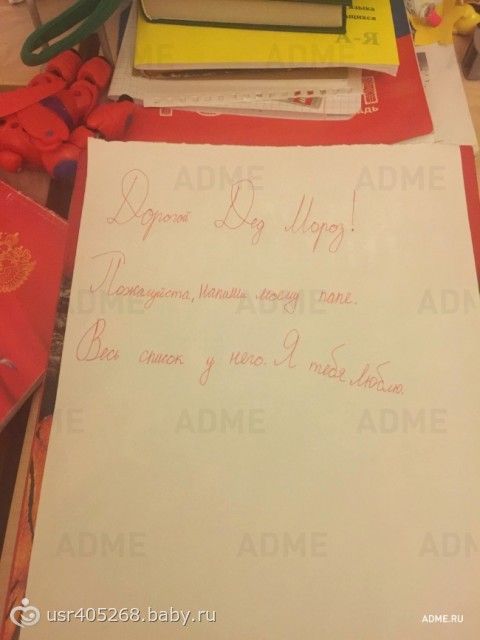 языка
ащихся
А-Я
Дорогой Дед Мороз!
Пожалуйста, напиши моему папе.
Весь список у него. Я тебя люблю.
ADME
ADME
ADME
ADME
ADME
ADME
ADME
ADME
ADME
ADME
ADME
usr405268.baby.ru
ADME.RU